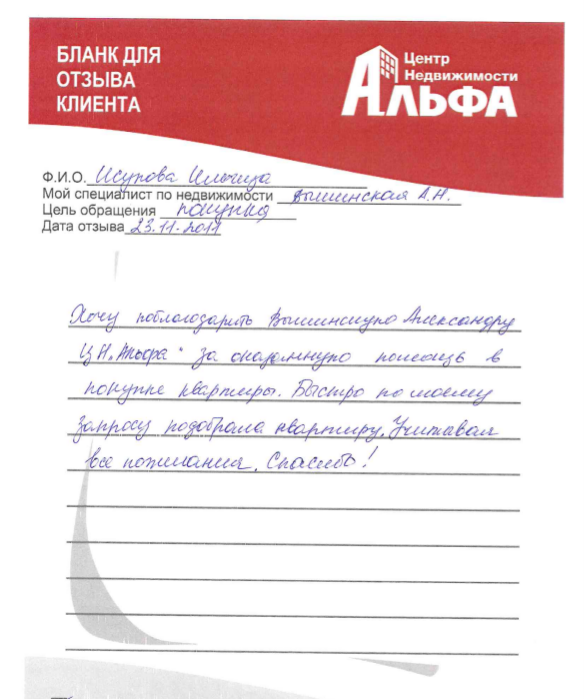 БЛАНК ДЛЯ
ОТЗЫВА
КЛИЕНТА
Центр
Недвижимости
АЛЬФА
Ф.И.О. Исупова
Мой специалист по недвижимости Вышинская А.Н.
Цель обращения покупка
Дата отзыва 23.11.2011
Хочу поблагодарить Вышинскую Александру
ЦН "Альфа" за оказанную помощь в
покупке квартиры. Быстро по моему
запросу подобрала квартиру, учитывая
все пожелания. Спасибо!